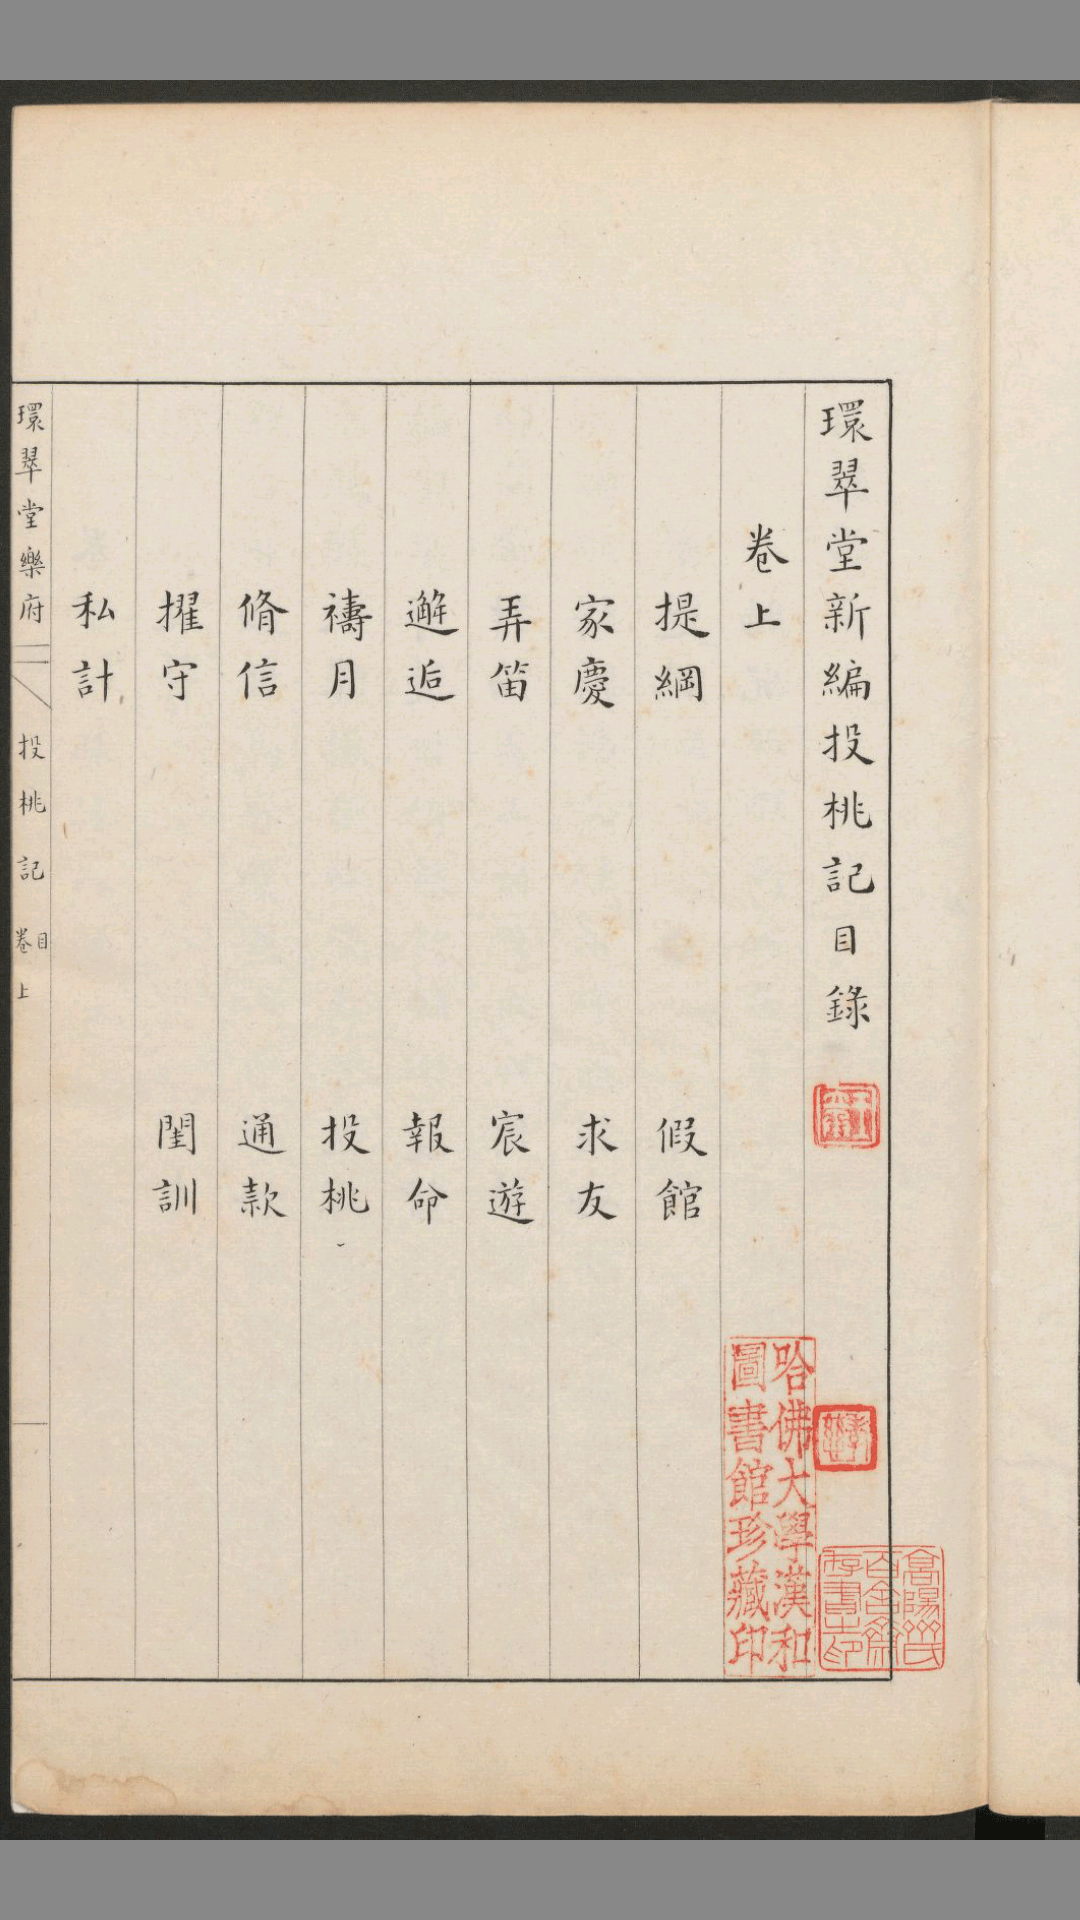 環翠堂新編投桃記目錄
卷上
提綱 假館
家慶 求友
弄笛 宸遊
邂逅 報命
禱月 投桃
脩信 通款
擢守 閨訓
私計
環翠堂樂府 投桃記 目卷上
哈佛大學漢和
圖書館珍藏印
高陽齊氏
百舍齋
存書之印